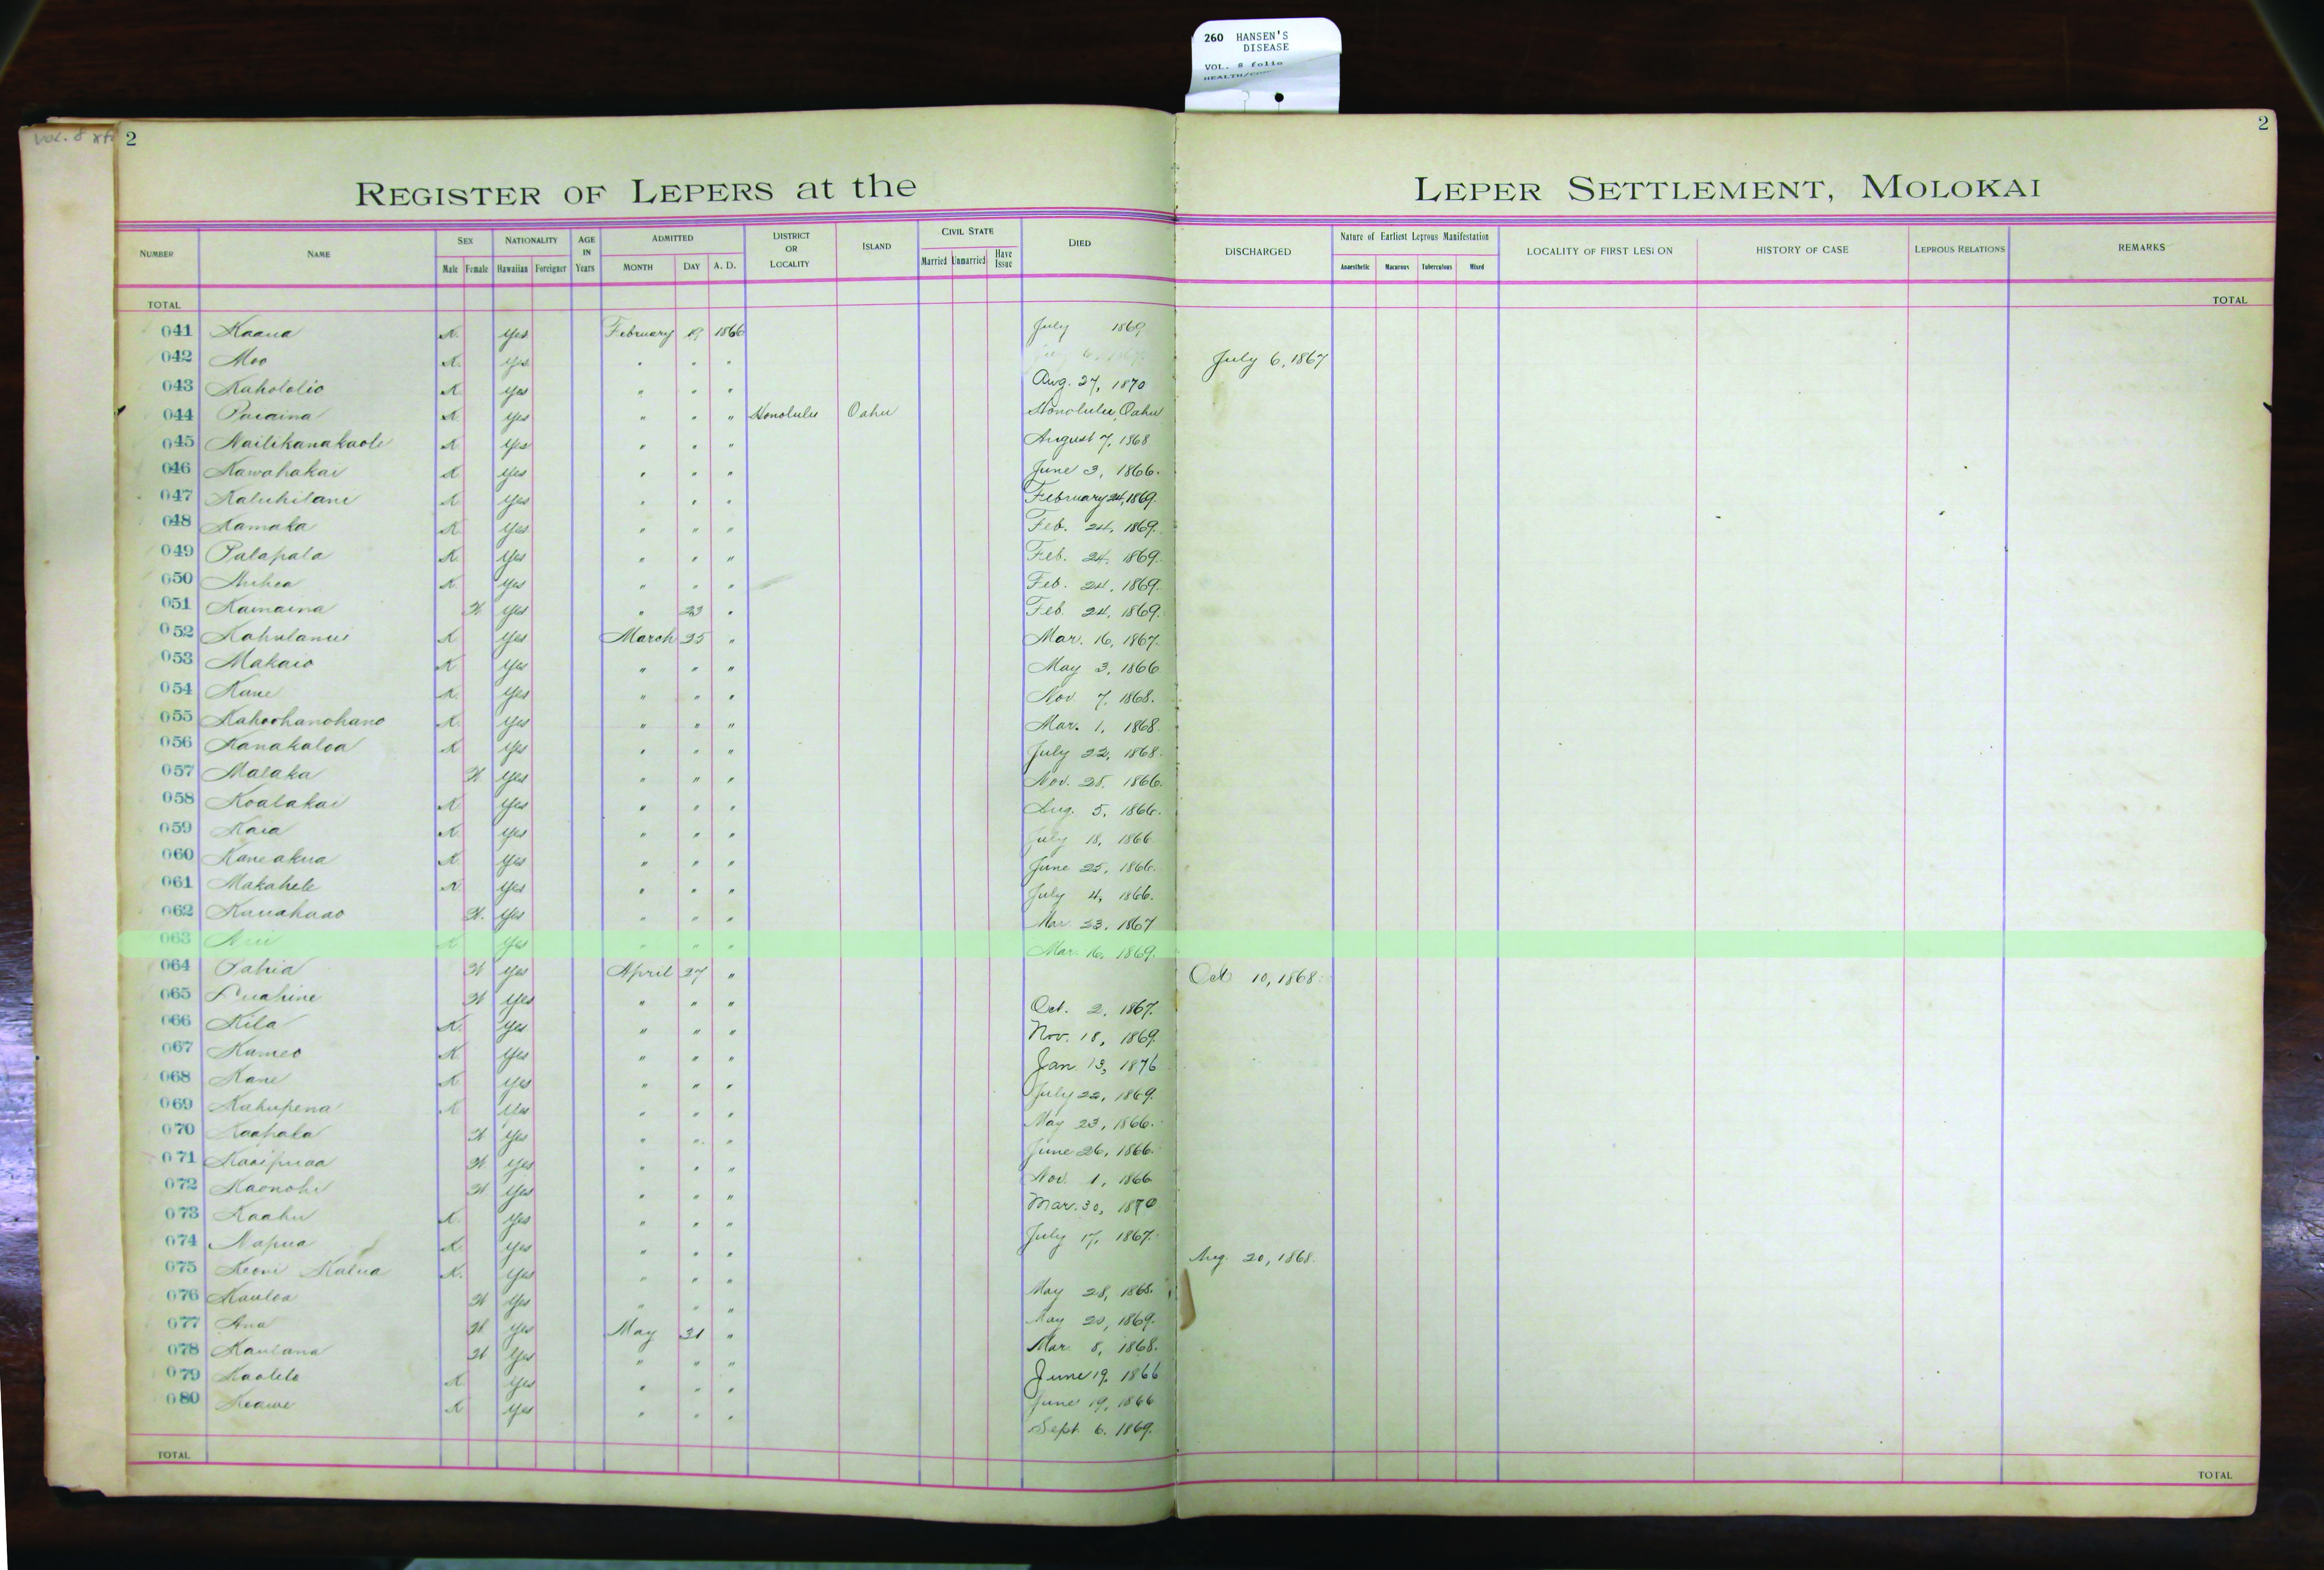 260 HANSEN'S
DISEASE
VOL. 8 folio
Vol. 8
2
2
REGISTER OF LEPERS at the LEPER SETTLEMENT, MOLOKAI
NUMBER NAME SEX Male Female NATIONALITY Hawaiian Foreigner AGE IN Years ADMITTED MONTH DAY A. D. DISTRICT OR LOCALITY ISLAND CIVIL STATE Married Unmarried Have Issue DIED DISCHARGED Nature of Earliest Leprous Manifestation Anaesthetic Macurous Tuberculous Mixed LOCALITY OF FIRST LESION HISTORY OF CASE LEPROUS RELATIONS REMARKS
TOTAL TOTAL
041 Kaaua K. Yes February 19 1866 July 1869
042 Moo K. Yes " " " July 6, 1867
043 Kahololio K Yes " " " Aug. 27, 1870
044 K Yes " " " Honolulu Oahu Honolulu, Oahu
045 K Yes " " " August 7, 1868
046 Kawahakai K Yes " " " June 3, 1866.
047 K Yes " " " February 24, 1869.
048 Kamaka K Yes " " " Feb. 24, 1869.
049 Palapala K. Yes " " " Feb. 24, 1869.
050 K Yes " " " Feb. 24, 1869.
051 Kamaina W. Yes " 23 " Feb. 24, 1869.
052 K Yes March 25 " Mar. 16, 1867.
053 Makaio K Yes " " " May 3, 1866
054 Kane K. Yes " " " Nov. 7, 1868.
055 Kahoohanohano K. Yes " " " Mar. 1, 1868.
056 Kanakaloa K Yes " " " July 22, 1868.
057 Malaka W Yes " " " Nov. 28, 1866.
058 Koalakai K Yes " " " Aug. 5, 1866.
059 Kaia K. Yes " " " July 18, 1866.
060 Kaneakua K Yes " " " June 25, 1866.
061 Makahele K Yes " " " July 4, 1866.
062 Kauahaao W. Yes " " " Mar. 23, 1867
063 K Yes " " " Mar. 16, 1869.
064 Pahia W Yes April 27 " Oct 10, 1868.
065 Puahine W Yes " " " Oct. 2, 1867.
066 Kila K. Yes " " " Nov. 18, 1869.
067 Kameo K Yes " " " Jan 13, 1876
068 Kane K Yes " " " July 22, 1869.
069 Kahupena K Yes " " " May 23, 1866.
070 Kaapala W Yes " " " June 26, 1866.
071 Kaaipuaa W. Yes " " " Nov. 1, 1866
072 Kaonohi W Yes " " " Mar. 30, 1870
073 Kaahu K. Yes " " " July 17, 1867.
074 Napua K Yes " " " Aug. 20, 1868.
075 Keoni Kalua K. Yes " " " May 28, 1868.
076 Kauloa W Yes " " " May 20, 1869.
077 Ana W. Yes May 31 " Mar. 8, 1868.
078 Kaulana W Yes " " " June 19, 1866
079 Kaolelo K Yes " " " June 19, 1866
080 Keawe K Yes " " " Sept. 6, 1869.
TOTAL TOTAL